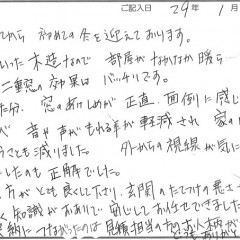 ご記入日 29年 1月
てから 初めての冬を迎えております。
いった木造なので 部屋がなかなか暖ら
二重窓の効果は バッチリです。
た分、窓のあけしめが 正直 面倒に感じ
が 音や声がもれる率が軽減され 家の
うことも減りました。 外からの視線が気に
したのも 正解でした。
方がとても良くして下さり、玄関のたてつけの悪さ
く知識がおありで 安心してお任せできました
契約に つながったのは 見積担当の方のお人柄が